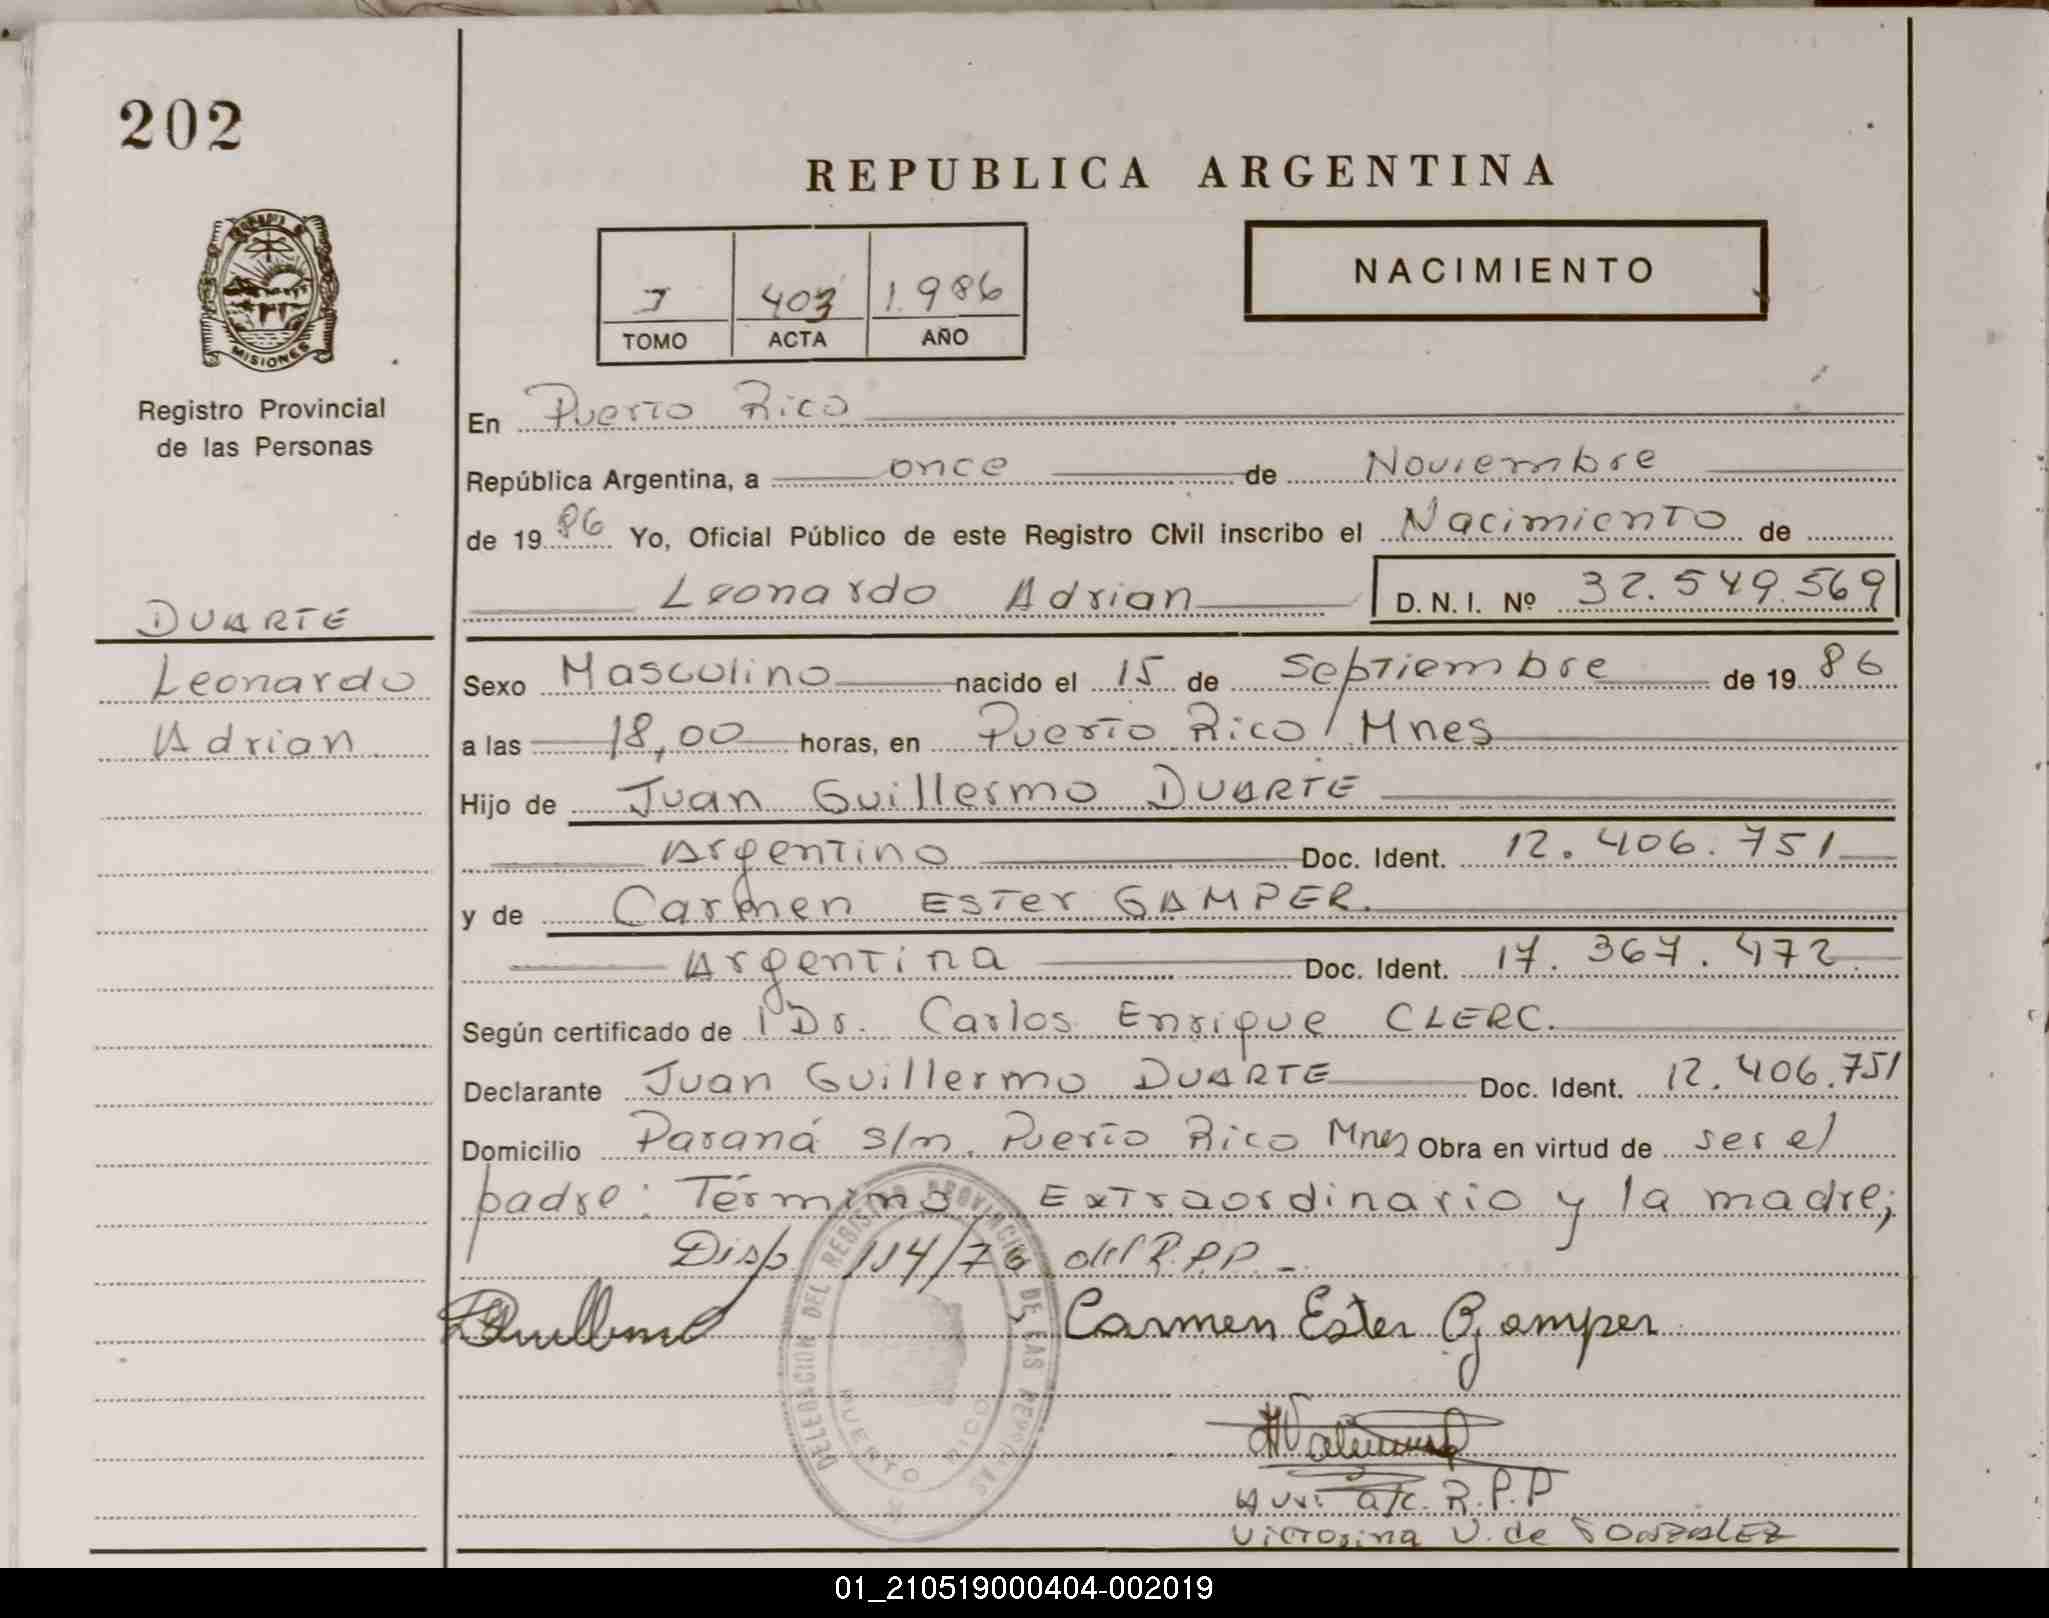 202
REPUBLICA ARGENTINA
MISIONES
Registro Provincial
de las Personas
I 403 1.986
TOMO ACTA AÑO
NACIMIENTO
En Puerto Rico
República Argentina, a once de Noviembre
de 19 86 Yo, Oficial Público de este Registro Civil inscribo el Nacimiento de
Leonardo Adrian D.N.I. Nº 32.549.569
DUARTE
Leonardo
Adrian
Sexo Masculino nacido el 15 de Septiembre de 19 86
a las 18,00 horas, en Puerto Rico / Mnes
Hijo de Juan Guillermo DUARTE
Argentino Doc. Ident. 12.406.751
y de Carmen ESTer GAMPER.
Argentina Doc. Ident. 17.367.472
Según certificado de Dr. Carlos Enrique CLERC.
Declarante Juan Guillermo DUARTE Doc. Ident. 12.406.751
Domicilio Paraná s/n. Puerto Rico Mnes Obra en virtud de ser el
padre: Término Extraordinario y la madre;
Disp. 114/76 del R.P.P.-
Carmen Ester Gamper
DELEGACION DEL REGISTRO PROVINCIAL DE LAS PERSONAS
PUERTO RICO
Aux. a/c. R.P.P
Victorina V. de GONZALEZ
01_210519000404-002019